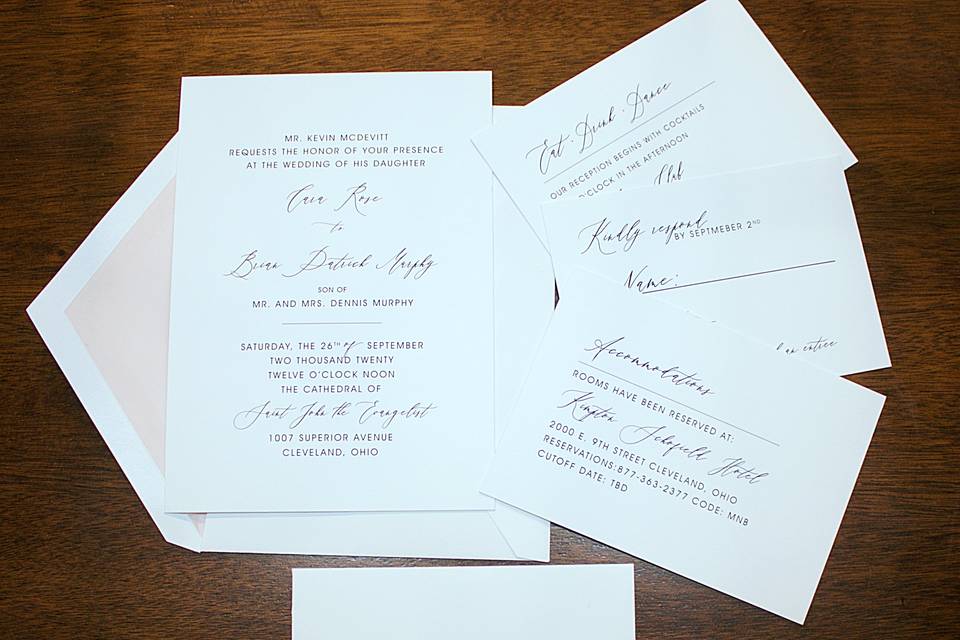 MR. KEVIN MCDEVITT
REQUESTS THE HONOR OF YOUR PRESENCE
AT THE WEDDING OF HIS DAUGHTER
Cara Rose
to
Brian Patrick Murphy
SON OF
MR. AND MRS. DENNIS MURPHY
SATURDAY, THE 26TH of SEPTEMBER
TWO THOUSAND TWENTY
TWELVE O'CLOCK NOON
THE CATHEDRAL OF
Saint John the Evangelist
1007 SUPERIOR AVENUE
CLEVELAND, OHIO
Eat · Drink · Dance
OUR RECEPTION BEGINS WITH COCKTAILS
O'CLOCK IN THE AFTERNOON
Club
Kindly respond
BY SEPTMEBER 2ND
Name:
an entree
Accommodations
ROOMS HAVE BEEN RESERVED AT:
Kimpton Schofield Hotel
2000 E. 9TH STREET CLEVELAND, OHIO
RESERVATIONS:877-363-2377 CODE: MNB
CUTOFF DATE: TBD